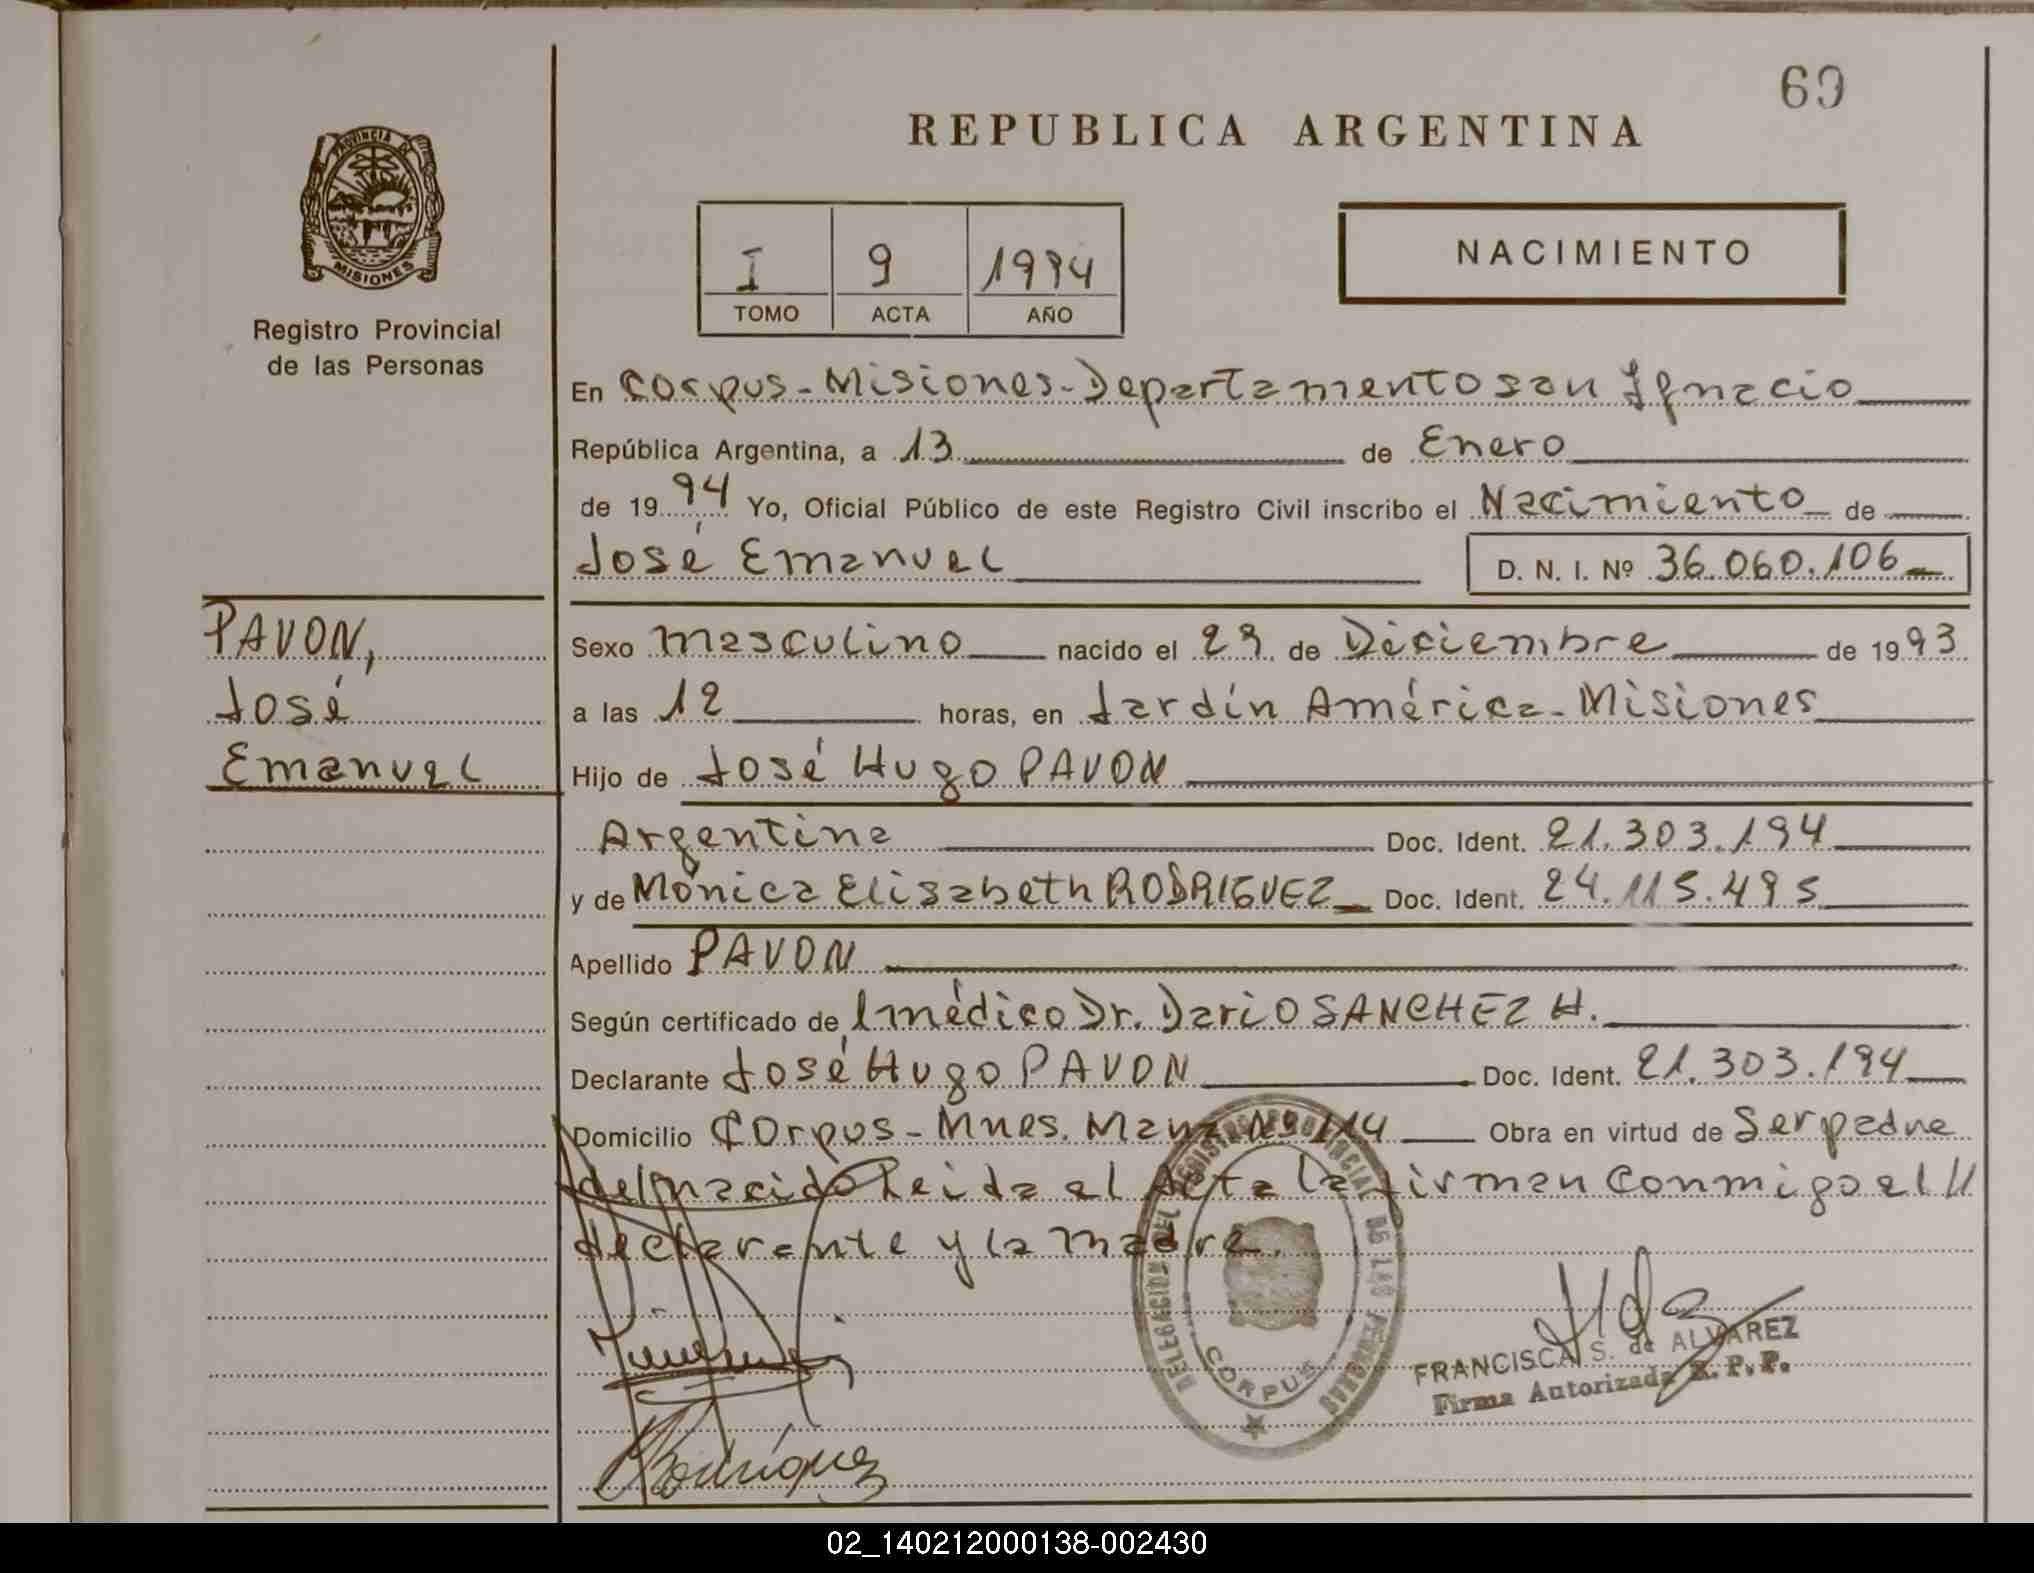 69
REPUBLICA ARGENTINA
PROVINCIA DE
MISIONES
Registro Provincial
de las Personas
I 9 1994
TOMO ACTA AÑO
NACIMIENTO
En Corpus - Misiones - Departamento san Ignacio
República Argentina, a 13 de Enero
de 1994 Yo, Oficial Público de este Registro Civil inscribo el Nacimiento de
José Emanuel
D. N. I. Nº 36.060.106
PAVON,
José
Emanuel
Sexo masculino nacido el 29 de Diciembre de 1993
a las 12 horas, en Jardín América - Misiones
Hijo de José Hugo PAVON
Argentina Doc. Ident. 21.303.194
y de Mónica Elisabeth RODRIGUEZ Doc. Ident. 24.115.495
Apellido PAVON
Según certificado de l médico Dr. Dario SANCHEZ H.
Declarante José Hugo PAVON Doc. Ident. 21.303.194
Domicilio Corpus - Mnes. Manz Nº 114 Obra en virtud de Ser padre
del nacido Leida el Acta la firman conmigo el //
declarante y la madre.
DELEGACION DEL REGISTRO PROVINCIAL DE LAS PERSONAS
CORPUS
FRANCISCA S. de ALVAREZ
Firma Autorizada R. P. P.
Rodríguez
02_140212000138-002430